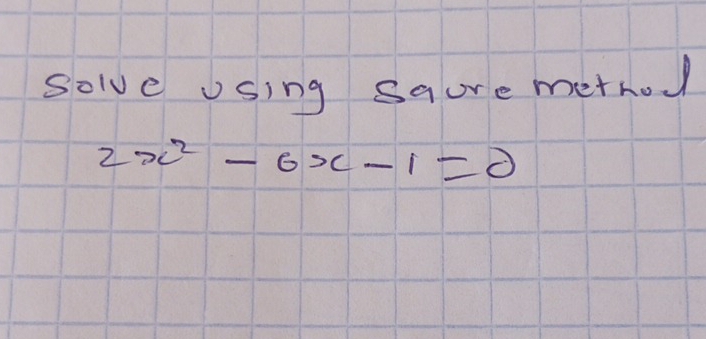 Solve using saure method
2x² - 6x - 1 = 0